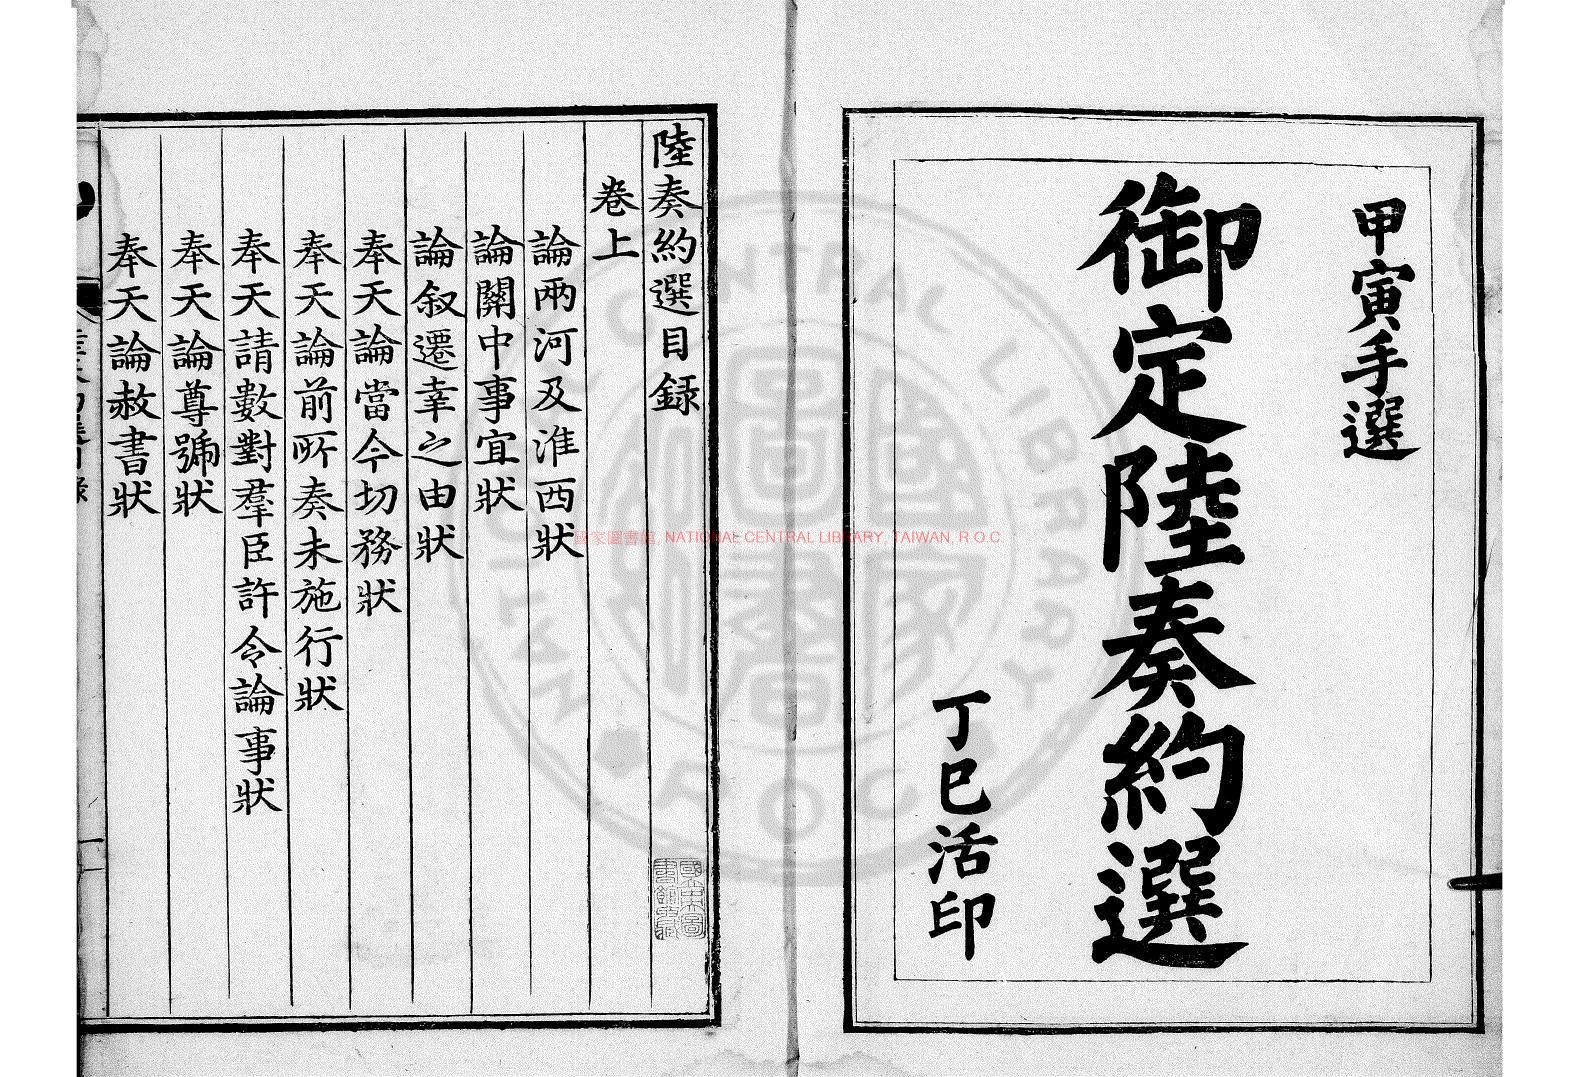 甲寅手選
御定陸奏約選
丁巳活印
陸奏約選目錄
卷上
論兩河及淮西狀
論關中事宜狀
論叙遷幸之由狀
奉天論當今切務狀
奉天論前所奏未施行狀
奉天請數對羣臣許令論事狀
奉天論尊號狀
奉天論赦書狀
國家圖書館, NATIONAL CENTRAL LIBRARY, TAIWAN, R.O.C